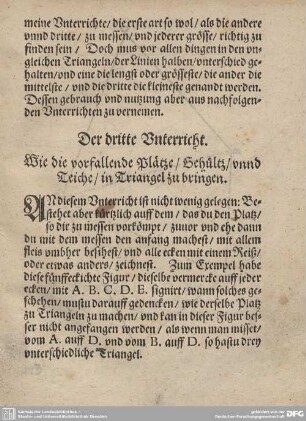 meine Vnterrichte/ die erste art so wol/ als die andere
vnnd dritte/ zu messen/ vnd jederer grösse/ richtig zu
finden sein/ Doch mus vor allen dingen in den vn-
gleichen Triangeln/ der Linien halben/ vnterschied ge-
halten/ vnd eine die lengst oder grösseste/ die ander die
mittelste/ vnd die dritte die kleineste genandt werden.
Dessen gebrauch vnd nutzung aber aus nachfolgen-
den Vnterrichten zu vernemen.
Der dritte Vnterricht.
Wie die vorfallende Plätze/ Gehültz/ vnnd
Teiche/ in Triangel zu bringen.
AN diesem Vnterricht ist nicht wenig gelegen: Be-
stehet aber kürtzlich auff dem/ das du den Platz/
so dir zu messen vorkömpt/ zuuor vnd ehe dann
du mit dem messen den anfang machest/ mit allem
fleis vmbher besihest/ vnd alle ecken mit einem Reiß/
oder etwas anders/ zeichnest. Zum Exempel habe
diese fünffeckichte Figur/ dieselbe vermercke auff jeder
ecken/ mit A. B. C. D. E. signirt/ wann solches ge-
schehen/ mustu darauff gedencken/ wie derselbe Platz
zu Triangeln zu machen/ vnd kan in dieser Figur bes-
ser nicht angefangen werden/ als wenn man misset/
vom A. auff D. vnd vom B. auff D. so hastu drey
vnterschiedliche Triangel.